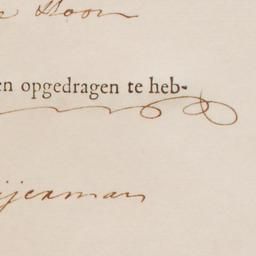 Hoorn
en opgedragen te heb-
ijerman